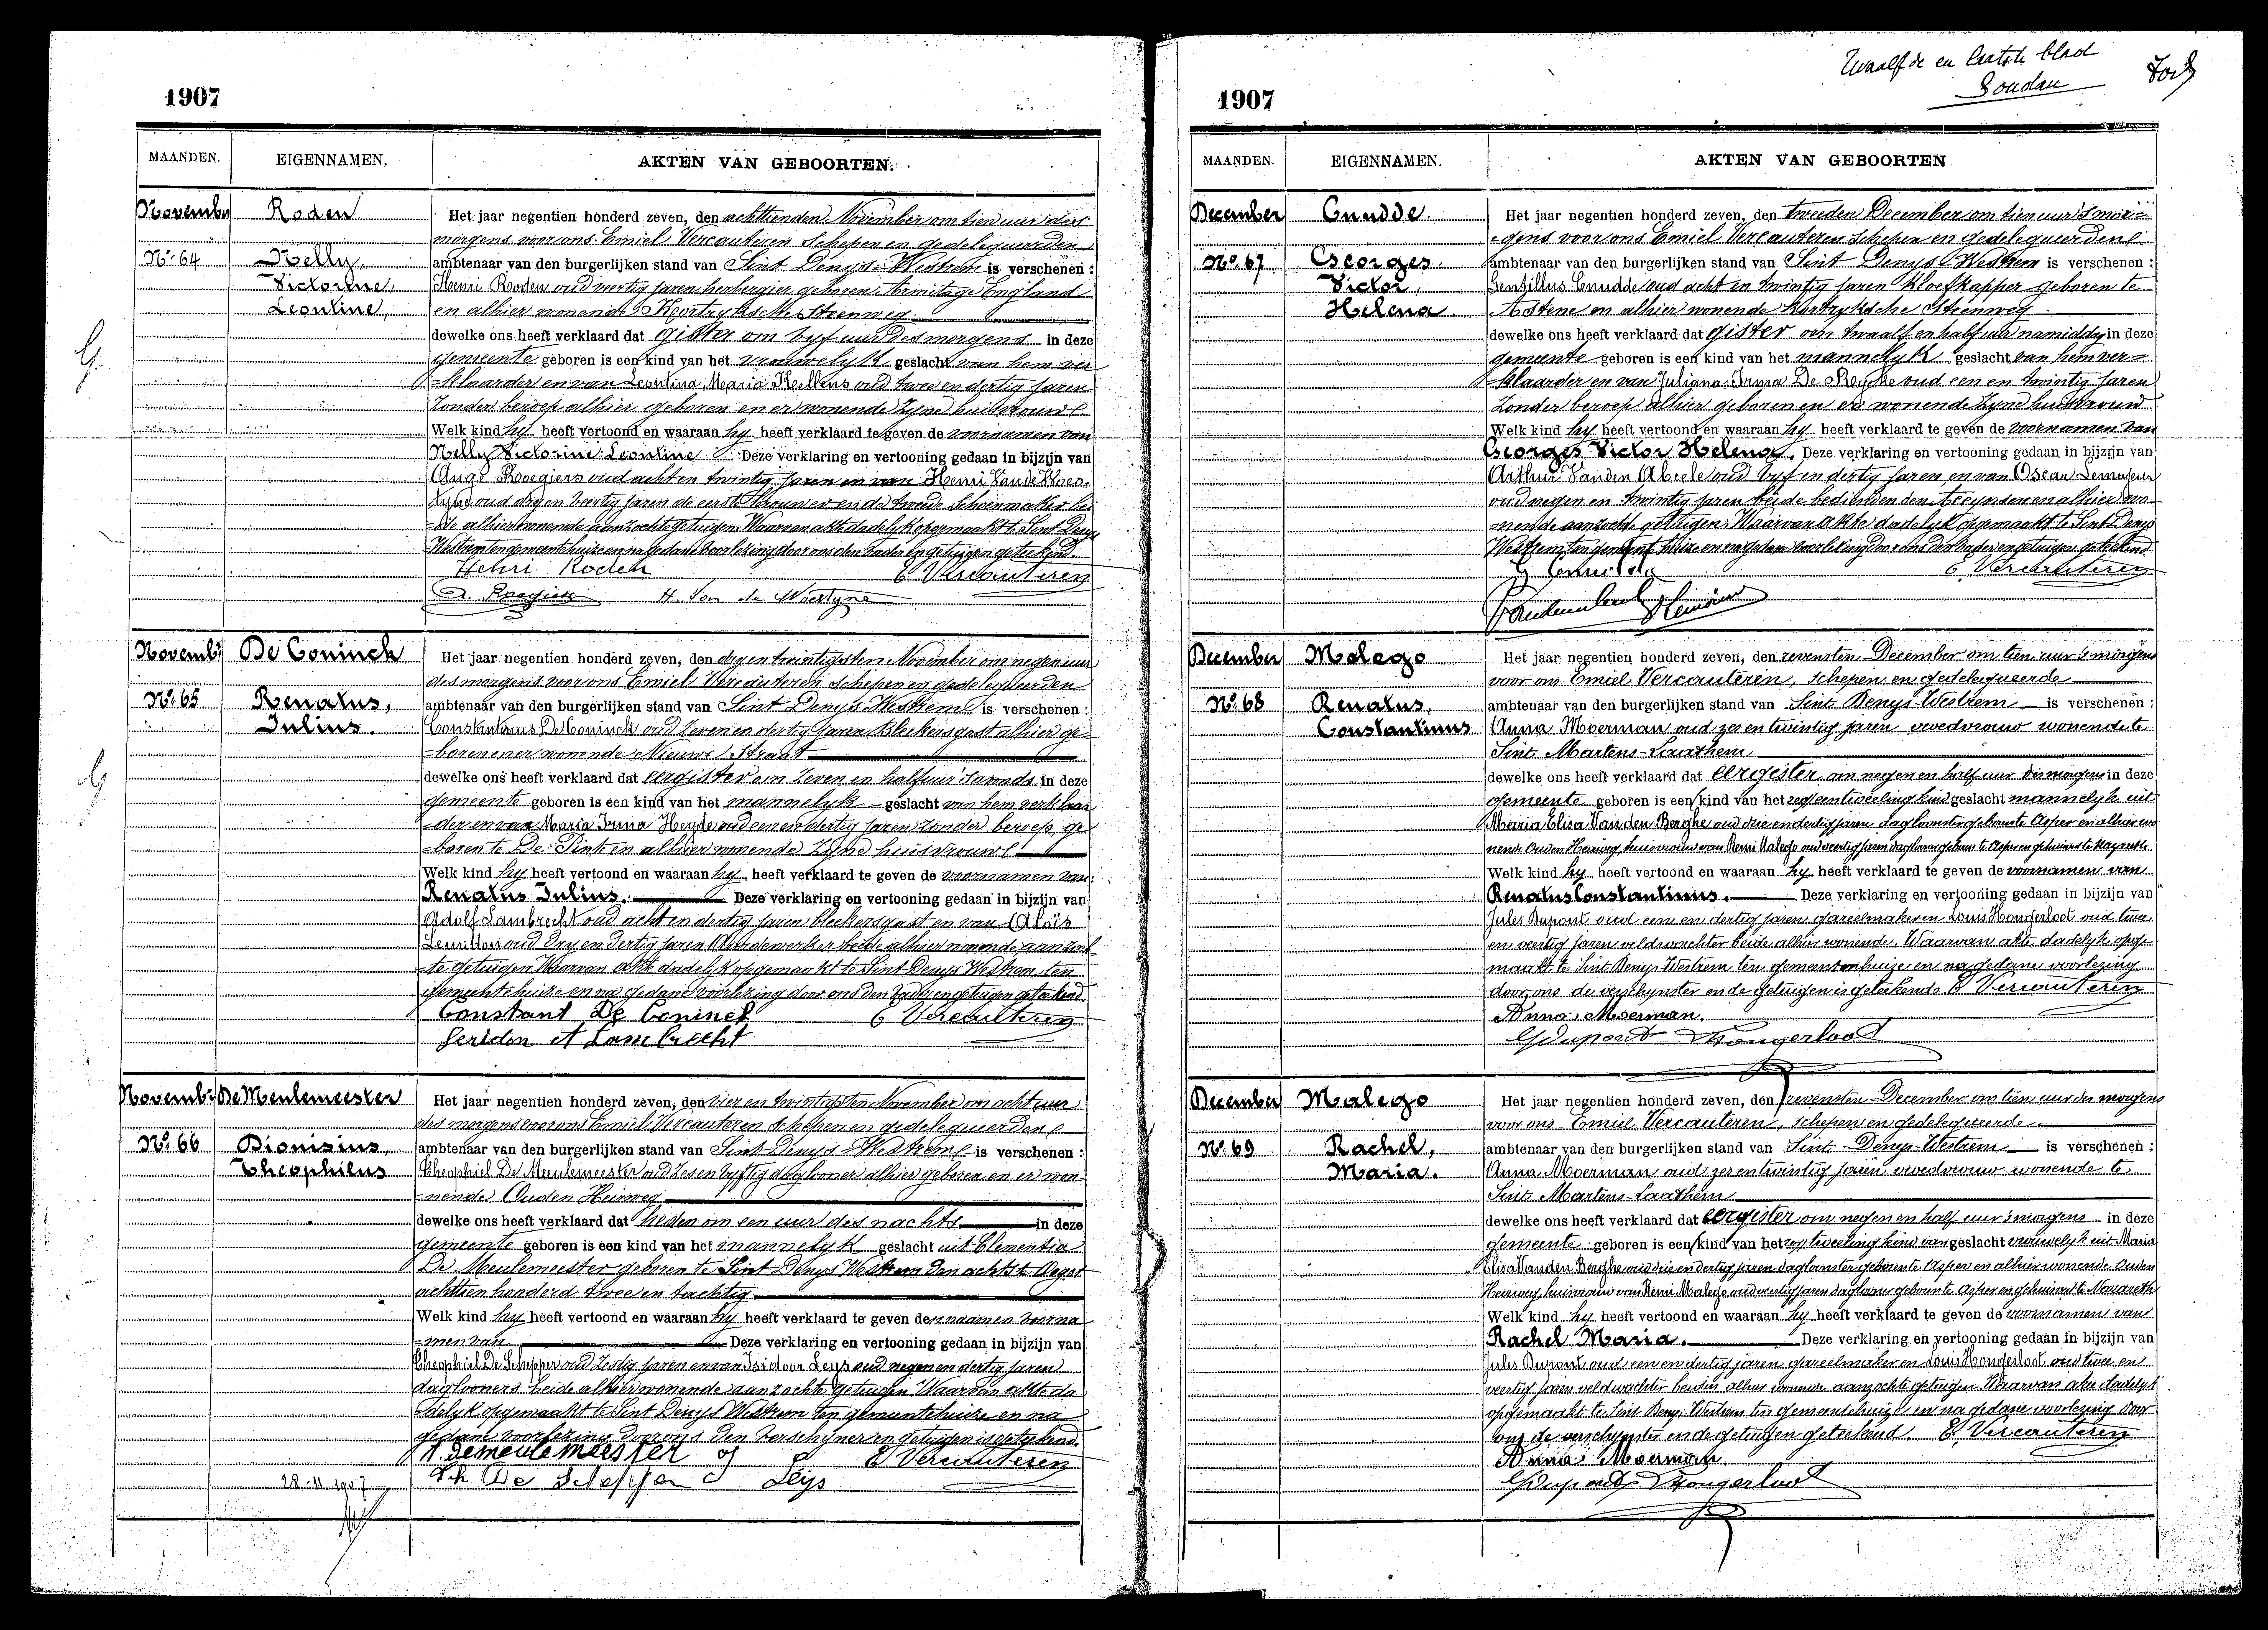 1907
MAANDEN. EIGENNAMEN. AKTEN VAN GEBOORTEN.
Novembr Roden
Nº 64 Nelly,
Victorine,
Leontine,
Het jaar negentien honderd zeven, den achttienden November om tien uur des
morgens voor ons Emiel Vercauteren Schepen en gedelegueerden
ambtenaar van den burgerlijken stand van Sint Denys-Westrem is verschenen :
Henri Roden oud veertig jaren herbergier geboren Armitage England
en alhier wonende Kortryksche Steenweg
dewelke ons heeft verklaard dat gister om vyf uur des morgens in deze
gemeente geboren is een kind van het vrouwelyk geslacht van hem ver
=klaarder en van Leontina Maria Kellens oud twee en dertig jaren
zonder beroep alhier geboren en er wonende zyne huisvrouwe
Welk kind hy heeft vertoond en waaraan hy heeft verklaard te geven de voornamen van
Nelly Victorine Leontine Deze verklaring en vertooning gedaan in bijzijn van
Roegiers oud acht en twintig jaren en van Henri Van de Woes-
tyne oud dry en veertig jaren de eerste brouwer en de tweede Schoenmaker bei
=de alhier wonende aanzochte getuigen. Waarvan akte dadelyk opgemaakt te Sint Denys
Westrem ten gemeentehuize en na gedane voorlezing door ons den vader en getuigen geteekend.
Henri Roden E Vercauteren
A. Roegiers H. Van de Woestyne
Novembr De Coninck
Nº 65 Renatus,
Julius.
Het jaar negentien honderd zeven, den dry en twintigsten November om negen uur
des morgens voor ons Emiel Vercauteren Schepen en gedelegueerden
ambtenaar van den burgerlijken stand van Sint Denys Westrem is verschenen :
Constantinus De Coninck oud zeven en dertig jaren Bleekersgast alhier ge=
=boren en er wonende Nieuwe Straat
dewelke ons heeft verklaard dat eergister om zeven en half uur 's avonds in deze
gemeente geboren is een kind van het mannelyk geslacht van hem verklaar
=der en van Maria Irma Heyde oud een en dertig jaren zonder beroep, ge
=boren te De Pinte en alhier wonende zyne huisvrouwe
Welk kind hy heeft vertoond en waaraan hy heeft verklaard te geven de voornamen van
Renatus Julius. Deze verklaring en vertooning gedaan in bijzijn van
Adolf Lambrecht oud acht en dertig jaren bleekersgast en van Aloïs
oud dry en dertig jaren beide alhier wonende aanzoch
=te getuigen Waarvan akte dadelyk opgemaakt te Sint Denys Westrem ten
gemeentehuize en na gedane voorlezing door ons den vader en getuigen geteekend.
Constant De Coninck E Vercauteren
Seridon A Lambrecht
Novembr De Meulemeester
Nº 66 Dionisius,
Theophilus
Het jaar negentien honderd zeven, den vier en twintigsten November om acht uur
des morgens voor ons Emiel Vercauteren Schepen en gedelegueerden
ambtenaar van den burgerlijken stand van Sint Denys Westrem is verschenen :
Theophiel De Meulemeester oud zes en vyftig daglooner alhier geboren en er wo=
=nende Ouden Heirweg
dewelke ons heeft verklaard dat heden om een uur des nachts in deze
gemeente geboren is een kind van het mannelyk geslacht uit Clementia
De Meulemeester geboren te Sint Denys Westrem den achtste Oogst
achttien honderd twee en tachtig
Welk kind hy heeft vertoond en waaraan hy heeft verklaard te geven de naamen voorna
=men van Deze verklaring en vertooning gedaan in bijzijn van
Theophiel De Schepper oud zestig jaren en van Isidoor Leys oud negen en dertig jaren
daglooners beide alhier wonende aanzochte getuigen. Waarvan akte da
=delyk opgemaakt te Sint Denys Westrem ten gemeentehuize en na
gedane voorlezing door ons den verschyner en getuigen is geteekend.
T. Demeulemeester E Vercauteren
Th De Schepper Leys
28-11-1907
Twaalfde en laatste blad
1907
MAANDEN. EIGENNAMEN. AKTEN VAN GEBOORTEN
December Cnudde
Nº 67 Georges,
Victor,
Helena
Het jaar negentien honderd zeven, den tweeden December om tien uur 's mor=
=gens voor ons Emiel Vercauteren Schepen en gedelegueerden
ambtenaar van den burgerlijken stand van Sint Denys Westrem is verschenen :
Gentillus Cnudde oud acht en twintig jaren Kloefkapper geboren te
Astene en alhier wonende Kortryksche Steenweg
dewelke ons heeft verklaard dat gister om twaalf en half uur namiddag in deze
gemeente geboren is een kind van het mannelyk geslacht van hem ver=
=klaarder en van Juliana Irma De Reyske oud een en twintig jaren
zonder beroep alhier geboren en er wonende zyne huisvrouw
Welk kind hy heeft vertoond en waaraan hy heeft verklaard te geven de voornamen van
Georges Victor Helena. Deze verklaring en vertooning gedaan in bijzijn van
Arthur Vanden Abeele oud vyf en dertig jaren en van Oscar
oud negen en twintig jaren beide bedienden den en alhier wo=
=nende aanzochte getuigen. Waarvan akte dadelyk opgemaakt te Sint Denys
Westrem ten gemeentehuize en na gedane voorlezing door ons den vader en getuigen geteekend.
G Cnudde E. Vercauteren
December Malego
Nº 68 Renatus,
Constantinus
Het jaar negentien honderd zeven, den zevensten December om tien uur 's morgens
voor ons Emiel Vercauteren, schepen en gedelegueerde
ambtenaar van den burgerlijken stand van Sint Denys-Westrem is verschenen :
Anna Moerman oud zes en twintig jaren vroedvrouw wonende te
Sint Martens-Laathem
dewelke ons heeft verklaard dat eergister om negen en half uur des morgens in deze
gemeente geboren is een kind van het zegt een tweeling kind geslacht mannelyk uit
Maria Elisa Van den Berghe oud drie en dertig jaren dagloonster geboren te Asper en alhier wo
nende Ouden Heirweg, huisvrouw van Remi Malego oud veertig jaren daglooner geboren te Asper en gehuisd te Nazareth
Welk kind hy heeft vertoond en waaraan hy heeft verklaard te geven de voornamen van
Renatus Constantinus. Deze verklaring en vertooning gedaan in bijzijn van
Jules Dupont oud een en dertig jaren gareelmaker en Louis Hongerloot oud twee
en veertig jaren veldwachter beide alhier wonende. Waarvan akte dadelyk opge-
maakt te Sint Denys-Westrem ten gemeentenhuize en na gedane voorlezing
door ons de verschynster en de getuigen is geteekend. E Vercauteren
Anna Moerman.
J Dupont Hongerloot
December Malego
Nº 69 Rachel,
Maria.
Het jaar negentien honderd zeven, den zevensten December om tien uur des morgens
voor ons Emiel Vercauteren, schepen en gedelegueerde
ambtenaar van den burgerlijken stand van Sint-Denys-Westrem is verschenen :
Anna Moerman oud zes en twintig jaren vroedvrouw wonende te
Sint Martens-Laathem
dewelke ons heeft verklaard dat eergister om negen en half uur 's morgens in deze
gemeente geboren is een kind van het zegt tweeling kind van geslacht vrouwelyk uit Maria
Elisa Vanden Berghe oud drie en dertig jaren dagloonster geboren te Asper en alhier wonende Ouden
Heirweg, huisvrouw van Remi Malego oud veertig jaren daglooner geboren te Asper en gehuisd te Nazareth
Welk kind hy heeft vertoond en waaraan hy heeft verklaard te geven de voornamen van
Rachel Maria. Deze verklaring en vertooning gedaan in bijzijn van
Jules Dupont oud een en dertig jaren gareelmaker en Louis Hongerloot oud twee en
veertig jaren veldwachter beiden alhier wonende aanzochte getuigen. Waarvan akte dadelyk
opgemaakt te Sint Denys-Westrem ten gemeentehuize en na gedane voorlezing door
ons de verschynster en de getuigen geteekend. E. Vercauteren
Anna Moerman.
J Dupont Hongerloot